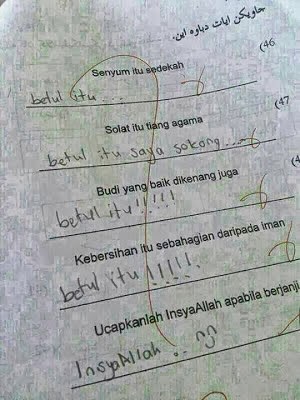 جاويكن ايات دباوه اين.
(46
Senyum itu sedekah
betul itu...
(47
Solat itu tiang agama
betul itu saya sokong....
(4
Budi yang baik dikenang juga
betul itu!!!!!
Kebersihan itu sebahagian daripada iman
betul itu!!!!!
Ucapkanlah InsyaAllah apabila berjanji
InsyaAllah ..